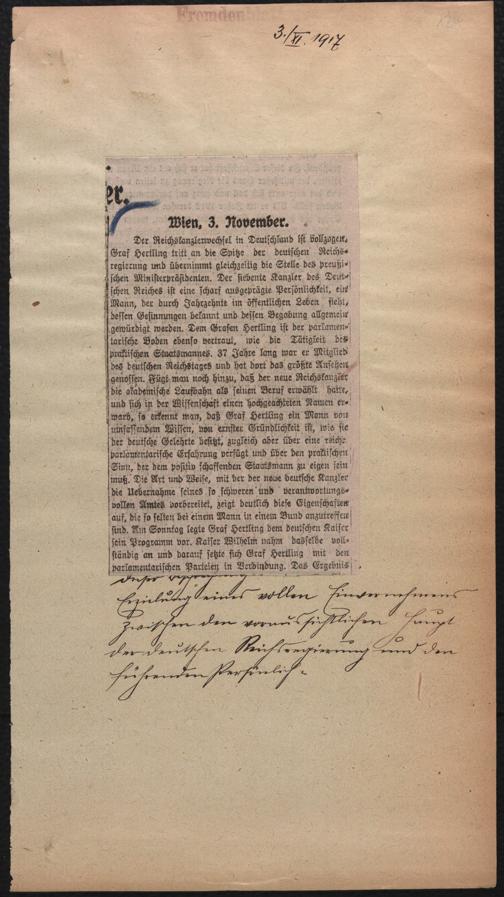 Fremden
3./XI. 1917
er.
Wien, 3. November.
Der Reichskanzlerwechsel in Deutschland ist vollzogen.
Graf Hertling tritt an die Spitze der deutschen Reichs-
regierung und übernimmt gleichzeitig die Stelle des preußi-
schen Ministerpräsidenten. Der siebente Kanzler des Deut-
schen Reiches ist eine scharf ausgeprägte Persönlichkeit, ein
Mann, der durch Jahrzehnte im öffentlichen Leben steht,
dessen Gesinnungen bekannt und dessen Begabung allgemein
gewürdigt werden. Dem Grafen Hertling ist der parlamen-
tarische Boden ebenso vertraut, wie die Tätigkeit des
praktischen Staatsmannes. 37 Jahre lang war er Mitglied
des deutschen Reichstages und hat dort das größte Ansehen
genossen. Fügt man noch hinzu, daß der neue Reichskanzler
die akademische Laufbahn als seinen Beruf erwählt hatte,
und sich in der Wissenschaft einen hochgeachteten Namen er-
warb, so erkennt man, daß Graf Hertling ein Mann von
umfassendem Wissen, von ernster Gründlichkeit ist, wie sie
der deutsche Gelehrte besitzt, zugleich aber über eine reiche
parlamentarische Erfahrung verfügt und über den praktischen
Sinn, der dem positiv schaffenden Staatsmann zu eigen sein
muß. Die Art und Weise, mit der der neue deutsche Kanzler
die Uebernahme seines so schweren und verantwortungs-
vollen Amtes vorbereitet, zeigt deutlich diese Eigenschaften
auf, die so selten bei einem Mann in einem Bund anzutreffen
sind. Am Sonntag legte Graf Hertling dem deutschen Kaiser
sein Programm vor. Kaiser Wilhelm nahm dasselbe voll-
ständig an und darauf setzte sich Graf Hertling mit den
parlamentarischen Parteien in Verbindung. Das Ergebnis
dieser Besprechung
Erzielung eines vollen Einvernehmens
zwischen dem voraussichtlichen Haupt
der deutschen Reichsregierung und den
führenden Persönlich-